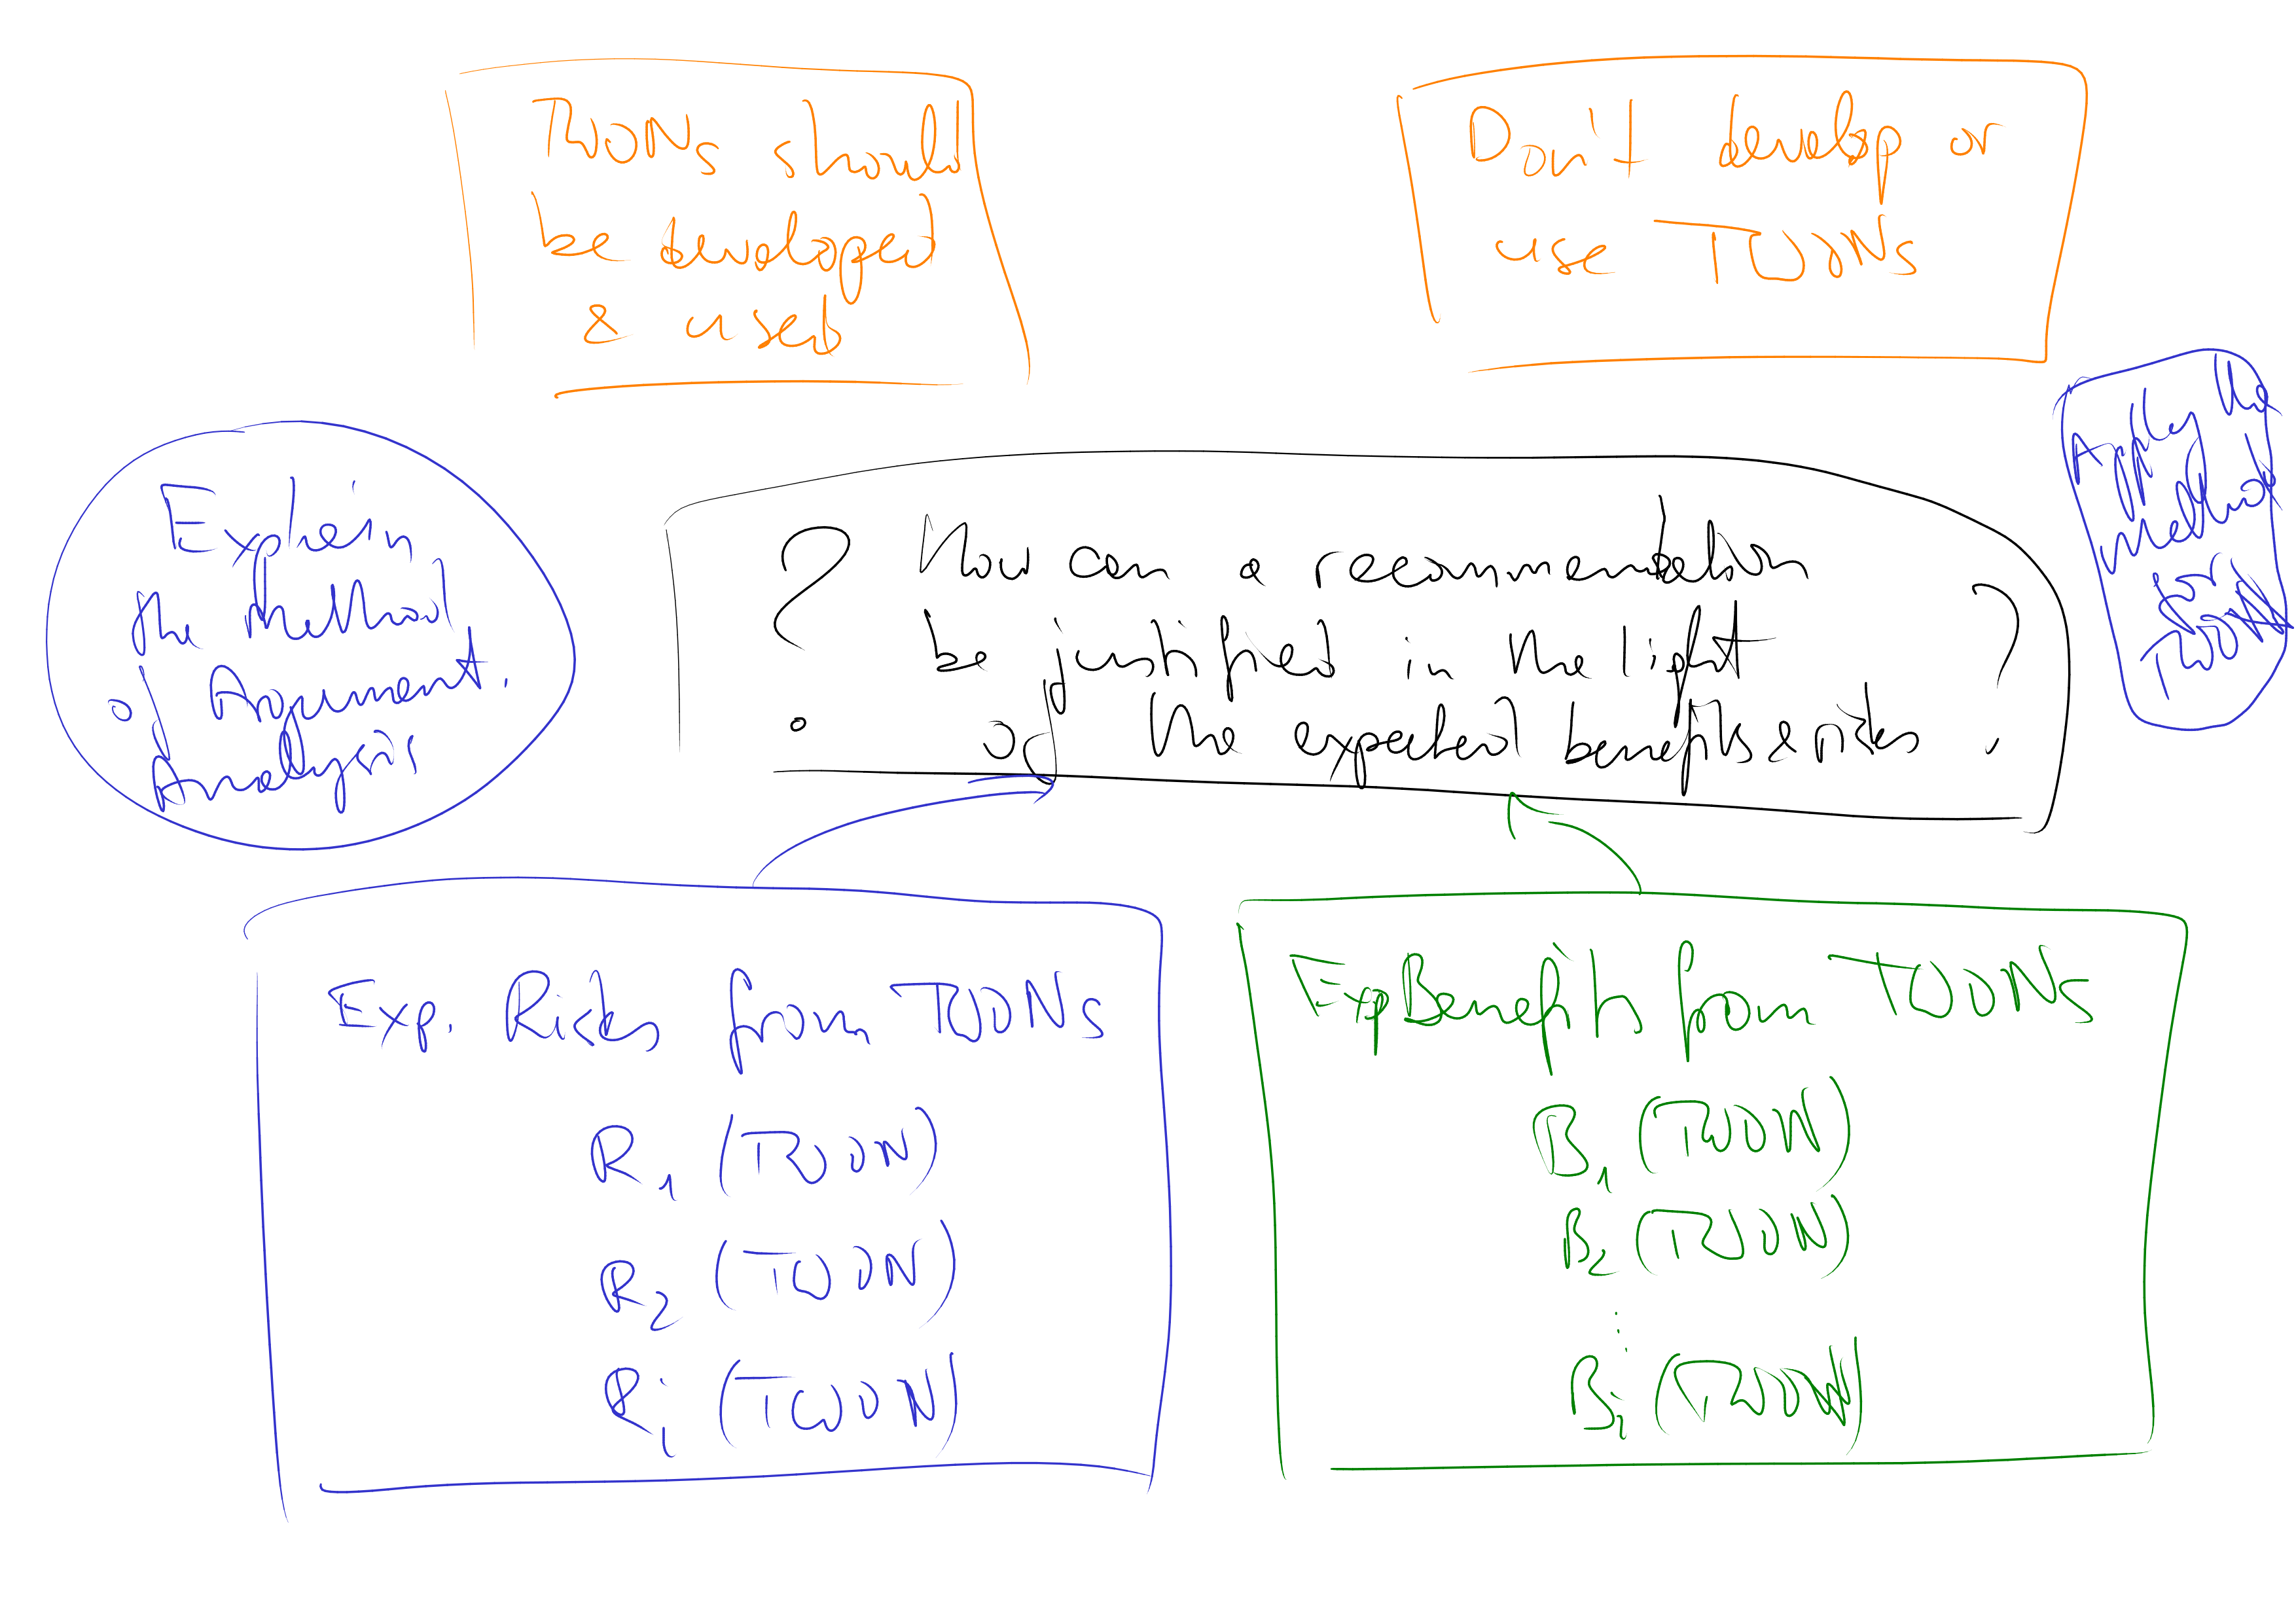 TOONs should
be developed
& used
Don't develop or
use TOONs
Explain
the Method
of Argument.
Analysis
? How can a recommendation
be justified in the light
of the expected benefits & risks ?
Apply the
method
for
TOON
Exp. Risks from TOONs
R1 (TOON)
R2 (TOON)
Ri (TOON)
Exp Benefits from TOONs
B1 (TOON)
B2 (TOON)
⋮
Bi (TOON)